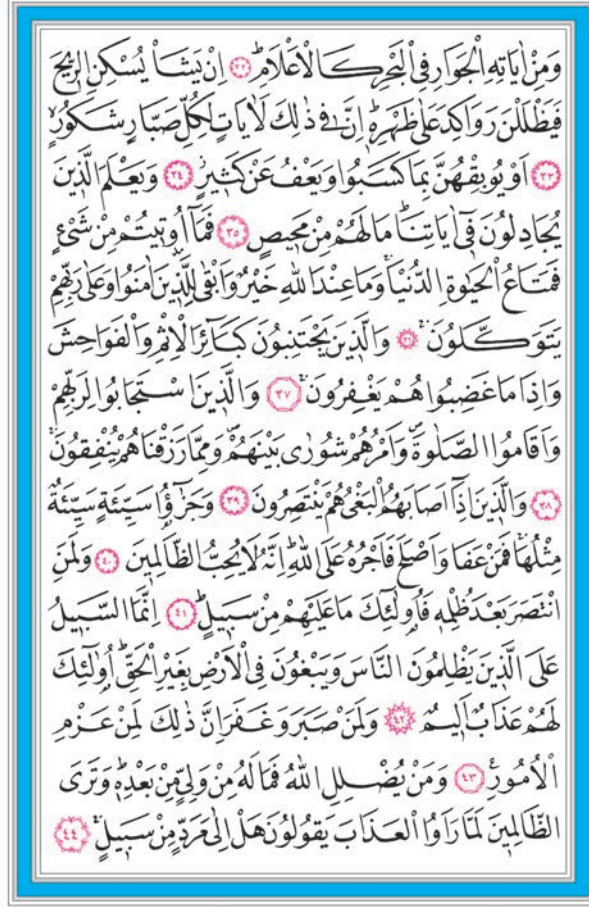 وَمِنْ اٰيَاتِهِ الْجَوَارِ فِي الْبَحْرِ كَالْاَعْلَامِۜ ﴿٣٢﴾ اِنْ يَشَأْ يُسْكِنِ الرّ۪يحَ
فَيَظْلَلْنَ رَوَاكِدَ عَلٰى ظَهْرِه۪ۜ اِنَّ ف۪ي ذٰلِكَ لَاٰيَاتٍ لِكُلِّ صَبَّارٍ شَكُورٍۙ
﴿٣٣﴾ اَوْ يُوبِقْهُنَّ بِمَا كَسَبُوا وَيَعْفُ عَنْ كَث۪يرٍۘ ﴿٣٤﴾ وَيَعْلَمَ الَّذ۪ينَ
يُجَادِلُونَ ف۪ٓي اٰيَاتِنَاۜ مَا لَهُمْ مِنْ مَح۪يصٍ ﴿٣٥﴾ فَمَٓا اُو۫ت۪يتُمْ مِنْ شَيْءٍ
فَمَتَاعُ الْحَيٰوةِ الدُّنْيَاۚ وَمَا عِنْدَ اللّٰهِ خَيْرٌ وَاَبْقٰى لِلَّذ۪ينَ اٰمَنُوا وَعَلٰى رَبِّهِمْ
يَتَوَكَّلُونَۚ ﴿٣٦﴾ وَالَّذ۪ينَ يَجْتَنِبُونَ كَبَٓائِرَ الْاِثْمِ وَالْفَوَاحِشَ
وَاِذَا مَا غَضِبُوا هُمْ يَغْفِرُونَۚ ﴿٣٧﴾ وَالَّذ۪ينَ اسْتَجَابُوا لِرَبِّهِمْ
وَاَقَامُوا الصَّلٰوةَۖ وَاَمْرُهُمْ شُورٰى بَيْنَهُمْۖ وَمِمَّا رَزَقْنَاهُمْ يُنْفِقُونَۚ
﴿٣٨﴾ وَالَّذ۪ينَ اِذَٓا اَصَابَهُمُ الْبَغْيُ هُمْ يَنْتَصِرُونَ ﴿٣٩﴾ وَجَزٰٓؤُ۬ا سَيِّئَةٍ سَيِّئَةٌ
مِثْلُهَاۚ فَمَنْ عَفَا وَاَصْلَحَ فَاَجْرُهُ عَلَى اللّٰهِۜ اِنَّهُ لَا يُحِبُّ الظَّالِم۪ينَ ﴿٤٠﴾ وَلَمَنِ
انْتَصَرَ بَعْدَ ظُلْمِه۪ فَاُو۬لٰٓئِكَ مَا عَلَيْهِمْ مِنْ سَب۪يلٍۜ ﴿٤١﴾ اِنَّمَا السَّب۪يلُ
عَلَى الَّذ۪ينَ يَظْلِمُونَ النَّاسَ وَيَبْغُونَ فِي الْاَرْضِ بِغَيْرِ الْحَقِّۜ اُو۬لٰٓئِكَ
لَهُمْ عَذَابٌ اَل۪يمٌ ﴿٤٢﴾ وَلَمَنْ صَبَرَ وَغَفَرَ اِنَّ ذٰلِكَ لَمِنْ عَزْمِ
الْاُمُورِ۟ ﴿٤٣﴾ وَمَنْ يُضْلِلِ اللّٰهُ فَمَا لَهُ مِنْ وَلِيٍّ مِنْ بَعْدِه۪ۜ وَتَرَى
الظَّالِم۪ينَ لَمَّا رَاَوُا الْعَذَابَ يَقُولُونَ هَلْ اِلٰى مَرَدٍّ مِنْ سَب۪يلٍۚ ﴿٤٤﴾